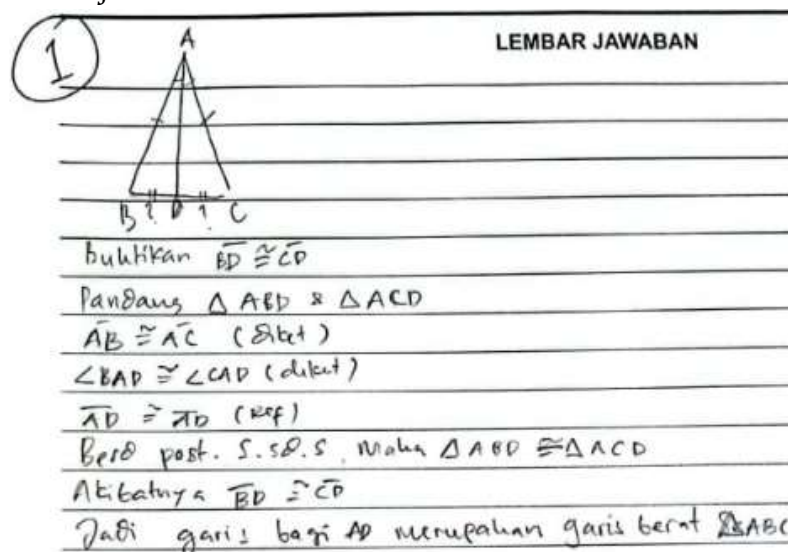 1
LEMBAR JAWABAN
A
B ? D ? C
buktikan BD ≅ CD
Pandang △ ABD & △ ACD
AB ≅ AC (diket)
∠BAD ≅ ∠CAD (diket)
AD ≅ AD (Ref)
Berd post. S.sd.S, maka △ ABD ≅ △ ACD
Akibatnya BD ≅ CD
Jadi garis bagi AD merupakan garis berat △ABC